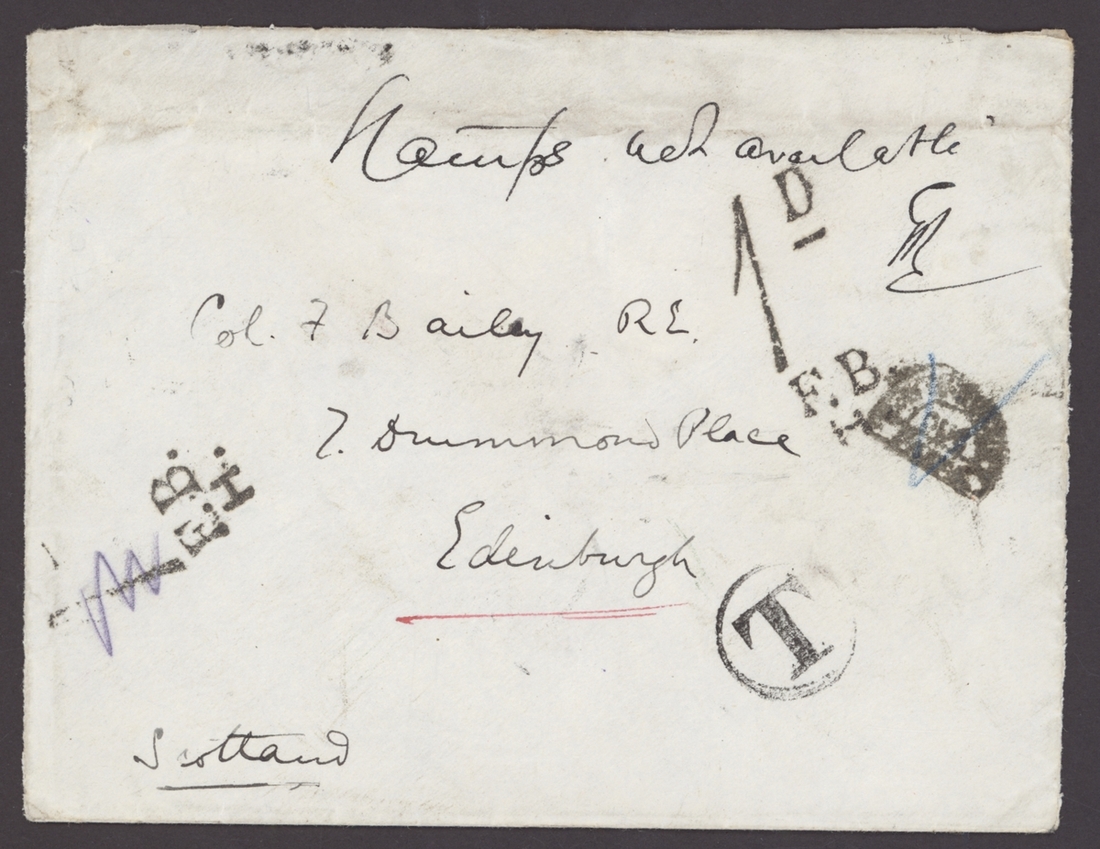 Stamps not available
1D
Col. F Bailey RE.
F.B.
7. Drummond Place
F.B.
E.H.
Edinburgh
T
Scotland